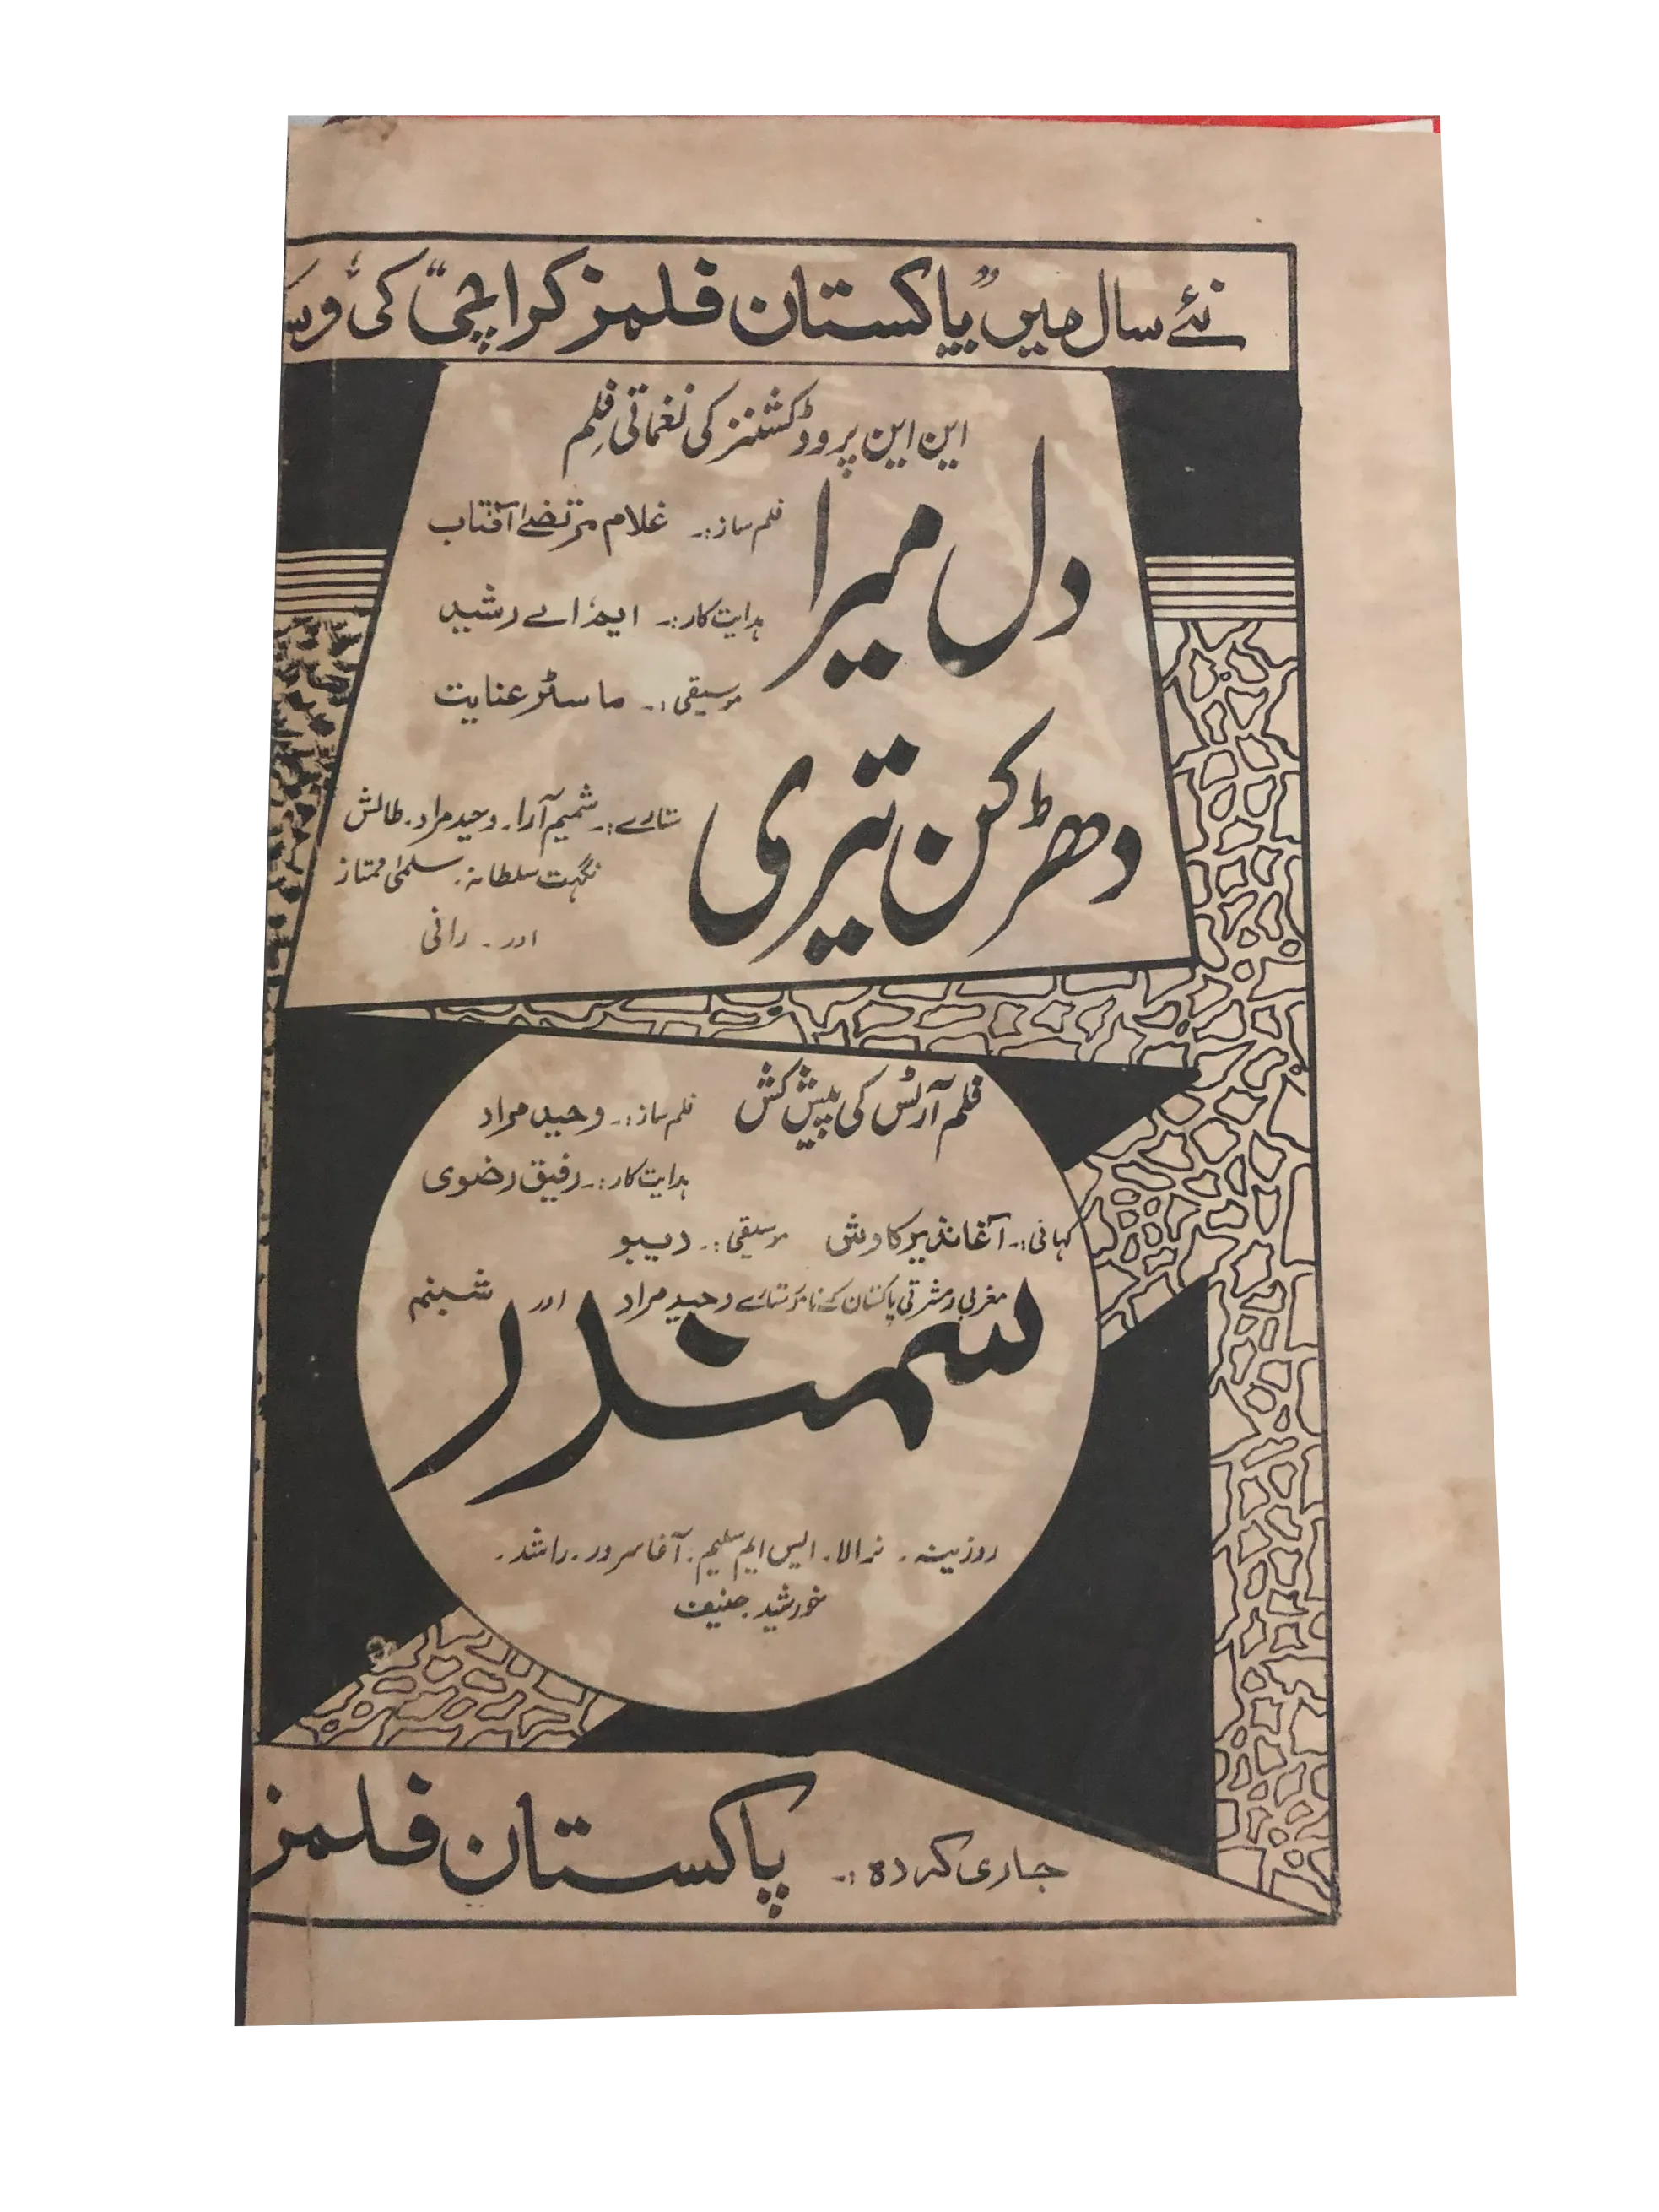 نئے سال میں "پاکستان فلمز کراچی" کی
این این پروڈکشنز کی نغماتی فلم
دل میرا
دھڑکن تیری
فلمساز:۔ غلام مرتضےٰ آفتاب
ہدایت کار:۔ ایم اے رشید
موسیقی:۔ ماسٹر عنایت
ستارے:۔ شمیم آرا۔ وحید مراد۔ طالش
نگہت سلطانہ۔ سلمیٰ ممتاز
اور۔ رانی
فلم آرٹس کی پیش کش
فلمساز:۔ وحید مراد
ہدایت کار:۔ رفیق رضوی
کہانی:۔ آغا نذیر کاوش موسیقی:۔ دیبو
مغربی و مشرقی پاکستان کے نامور ستارے وحید مراد اور شبنم
سمندر
روزینہ۔ نرالا۔ ایس ایم سلیم۔ آغا سرور۔ راشد۔
خورشید۔ حنیف
جاری کردہ:۔ پاکستان فلمز